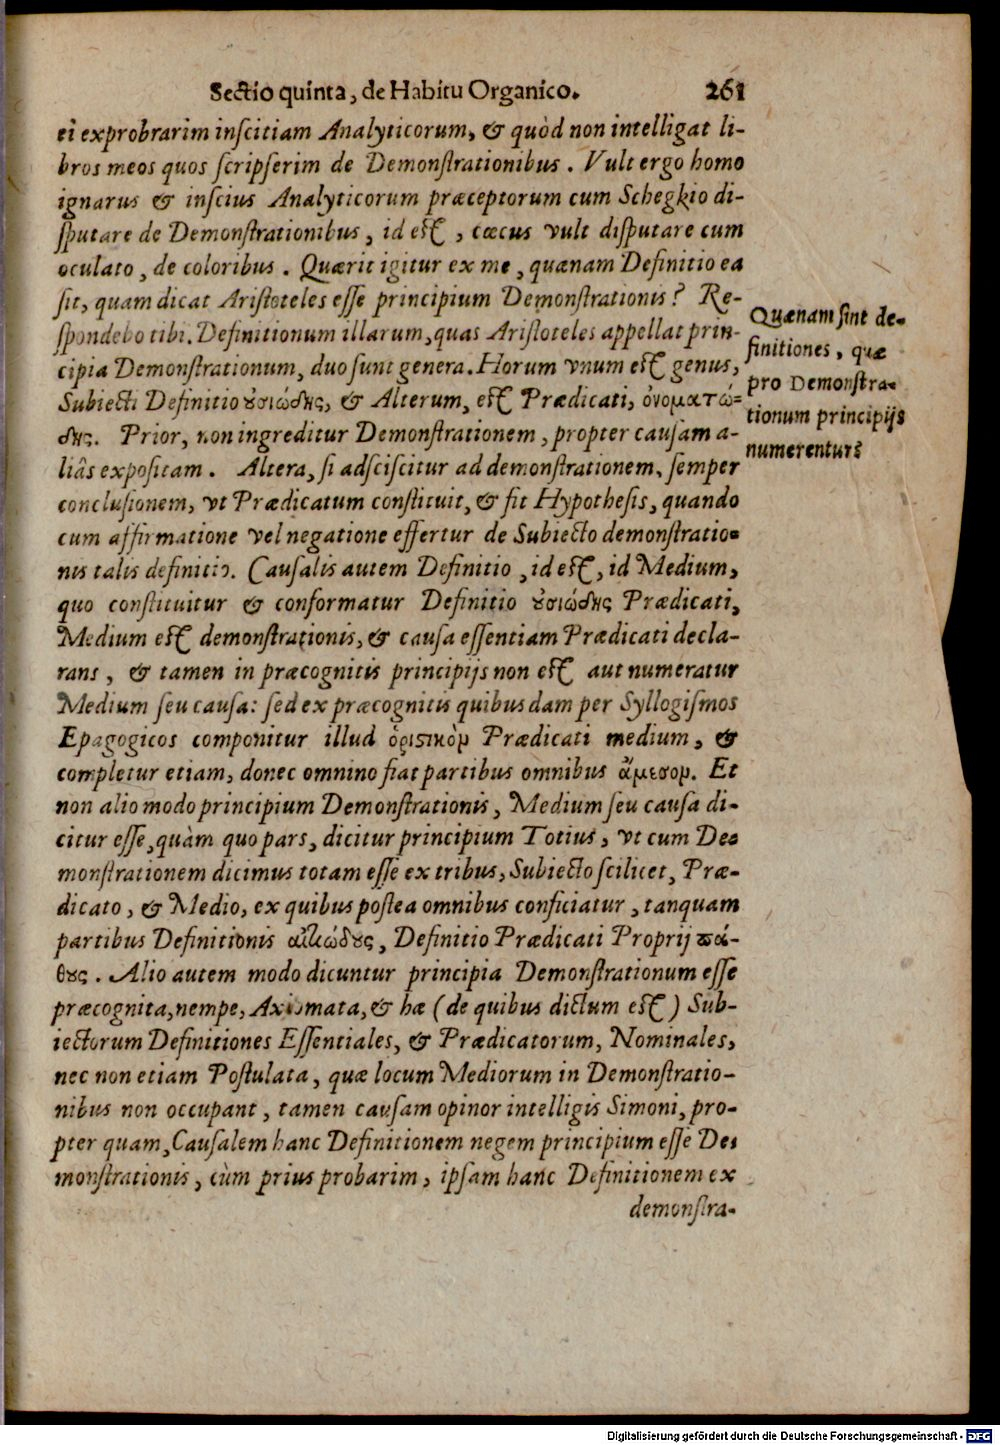 Sectio quinta, de Habitu Organico. 261
ei exprobrarim inscitiam Analyticorum, & quòd non intelligat li-
bros meos quos scripserim de Demonstrationibus. Vult ergo homo
ignarus & inscius Analyticorum præceptorum cum Schegkio di-
sputare de Demonstrationibus, id est, cæcus vult disputare cum
oculato, de coloribus. Quærit igitur ex me, quænam Definitio ea
sit, quam dicat Aristoteles esse principium Demonstrationis? Re-
spondebo tibi. Definitionum illarum, quas Aristoteles appellat prin-
cipia Demonstrationum, duo sunt genera. Horum vnum est genus,
Subiecti Definitio ȣσιώδης, & Alterum, est Prædicati, ὀνοματώ-
δης. Prior, non ingreditur Demonstrationem, propter causam a-
liâs expositam. Altera, si adsciscitur ad demonstrationem, semper
conclusionem, vt Prædicatum constituit, & fit Hypothesis, quando
cum affirmatione vel negatione effertur de Subiecto demonstratio-
nis talis definitio. Causalis autem Definitio, id est, id Medium,
quo constituitur & conformatur Definitio ȣσιώδης Prædicati,
Medium est demonstrationis, & causa essentiam Prædicati decla-
rans, & tamen in præcognitis principijs non est aut numeratur
Medium seu causa: sed ex præcognitis quibusdam per Syllogismos
Epagogicos componitur illud ὁριστικὸν Prædicati medium, &
completur etiam, donec omnino fiat partibus omnibus ἄμεσον. Et
non alio modo principium Demonstrationis, Medium seu causa di-
citur esse, quàm quo pars, dicitur principium Totius, vt cum De-
monstrationem dicimus totam esse ex tribus, Subiecto scilicet, Præ-
dicato, & Medio, ex quibus postea omnibus conficiatur, tanquam
partibus Definitionis αἰτιώδȣς, Definitio Prædicati Proprij πά-
θȣς. Alio autem modo dicuntur principia Demonstrationum esse
præcognita, nempe, Axiomata, & hæ (de quibus dictum est) Sub-
iectorum Definitiones Essentiales, & Prædicatorum, Nominales,
nec non etiam Postulata, quæ locum Mediorum in Demonstratio-
nibus non occupant, tamen causam opinor intelligis Simoni, pro-
pter quam, Causalem hanc Definitionem negem principium esse De-
monstrationis, cùm prius probarim, ipsam hanc Definitionem ex
demonstra-
Quænam sint de-
finitiones, quæ
pro Demonstra-
tionum principijs
numerentur?
Digitalisierung gefördert durch die Deutsche Forschungsgemeinschaft - DFG